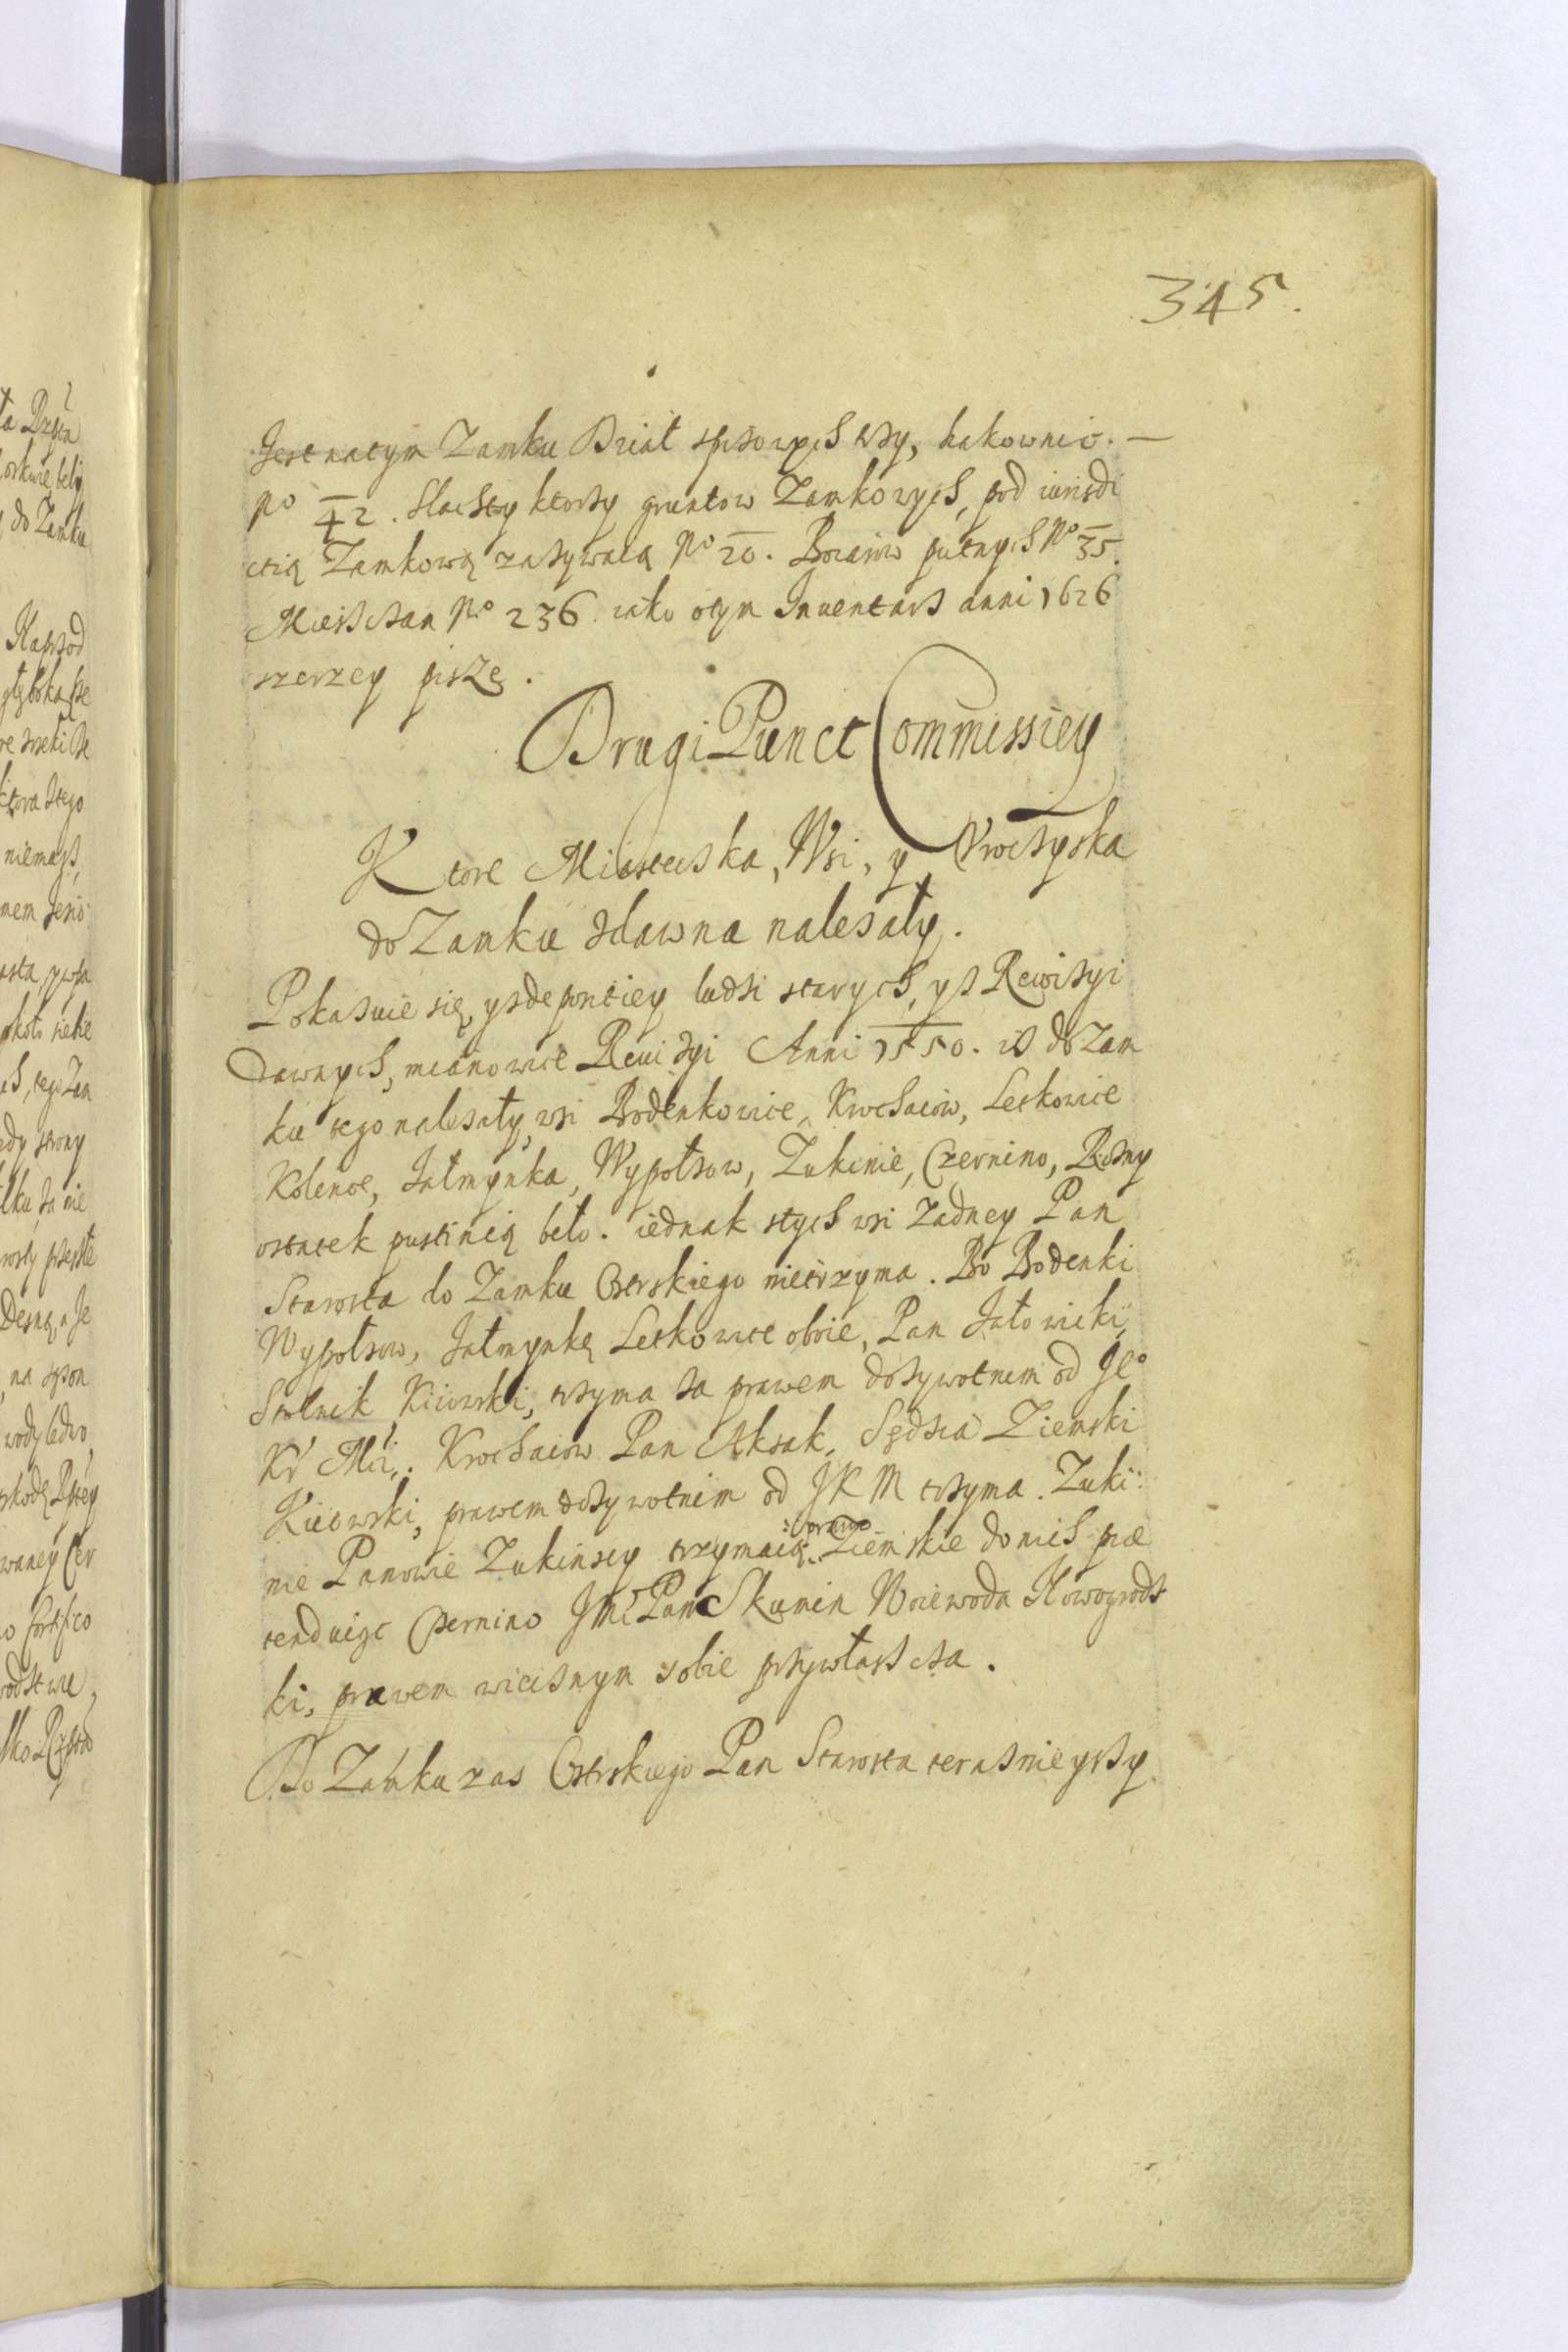 345.
Jest natym Zamku Dział spiżowych trzy, hakownic. —
No 42. Slachty ktorzy gruntow Zamkowych, pod iurisdi
ctią Zamkową zażywaią No 20. Boiarow putnych No 35.
Mieszczan No 236. iako otym Inuentarz anni 1626
szerzey pisze.
Drugi Punct Commissiey
Ktore Miasteczka, Wsi, y Vroczyska
do Zamku zdawna należały.
Pokazuie się, yzdepontiey ludzi starych, yz Rewizyi
dawnych, mianowice Reuizyi Anni 1550. iż do Zam
ku tego należały wsi Bodenkowice, Krochaiow, Leskowice
Kolence, Jałmynka, Wypołzow, Zukinie, Czernino, Rożny
ostatek pustinią beło. iednak stych wsi Zadney Pan
Starosta do Zamku Ostrskiego nietrzyma. Bo Bodenki
Wypołzow, Jałmynkę Leskowice oboie, Pan Jałowicki,
Stolnik Kiiowski, trzyma za prawem dożywotnim od Je°
Kr Mci. Krochaiow Pan Aksak, Sędzia Ziemski
Kiiowski, prawem dożywotnim od JKM trzyma. Zuki:
nie Panowie Zukinscy trzymaią prawo Ziemskie do nich præ
tenduiąc Czernino Jmć Pan Skumin Woiewoda Nowogrodz
ki, prawem wiecznym sobie przywłaszcza.
Do Zamku zas Ostrskiego Pan Starosta teraznieyszy